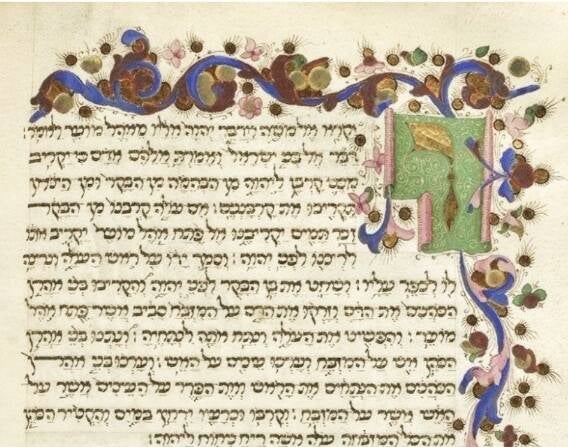 ויקרא אל משה וידבר יהוה אליו מאהל מועד לאמר:
דבר אל בני ישראל ואמרת אלהם אדם כי יקריב
מכם קרבן ליהוה מן הבהמה מן הבקר ומן הצאן
תקריבו את קרבנכם: אם עלה קרבנו מן הבקר
זכר תמים יקריבנו אל פתח אהל מועד יקריב אתו
לרצנו לפני יהוה: וסמך ידו על ראש העלה ונרצה
לו לכפר עליו: ושחט את בן הבקר לפני יהוה והקריבו בני אהרן
הכהנים את הדם וזרקו את הדם על המזבח סביב אשר פתח אהל
מועד: והפשיט את העלה ונתח אתה לנתחיה: ונתנו בני אהרן
הכהן אש על המזבח וערכו עצים על האש: וערכו בני אהרן
הכהנים את הנתחים את הראש ואת הפדר על העצים אשר על
האש אשר על המזבח: וקרבו וכרעיו ירחץ במים והקטיר הכהן
את הכל המזבחה עלה אשה ריח ניחוח ליהוה: